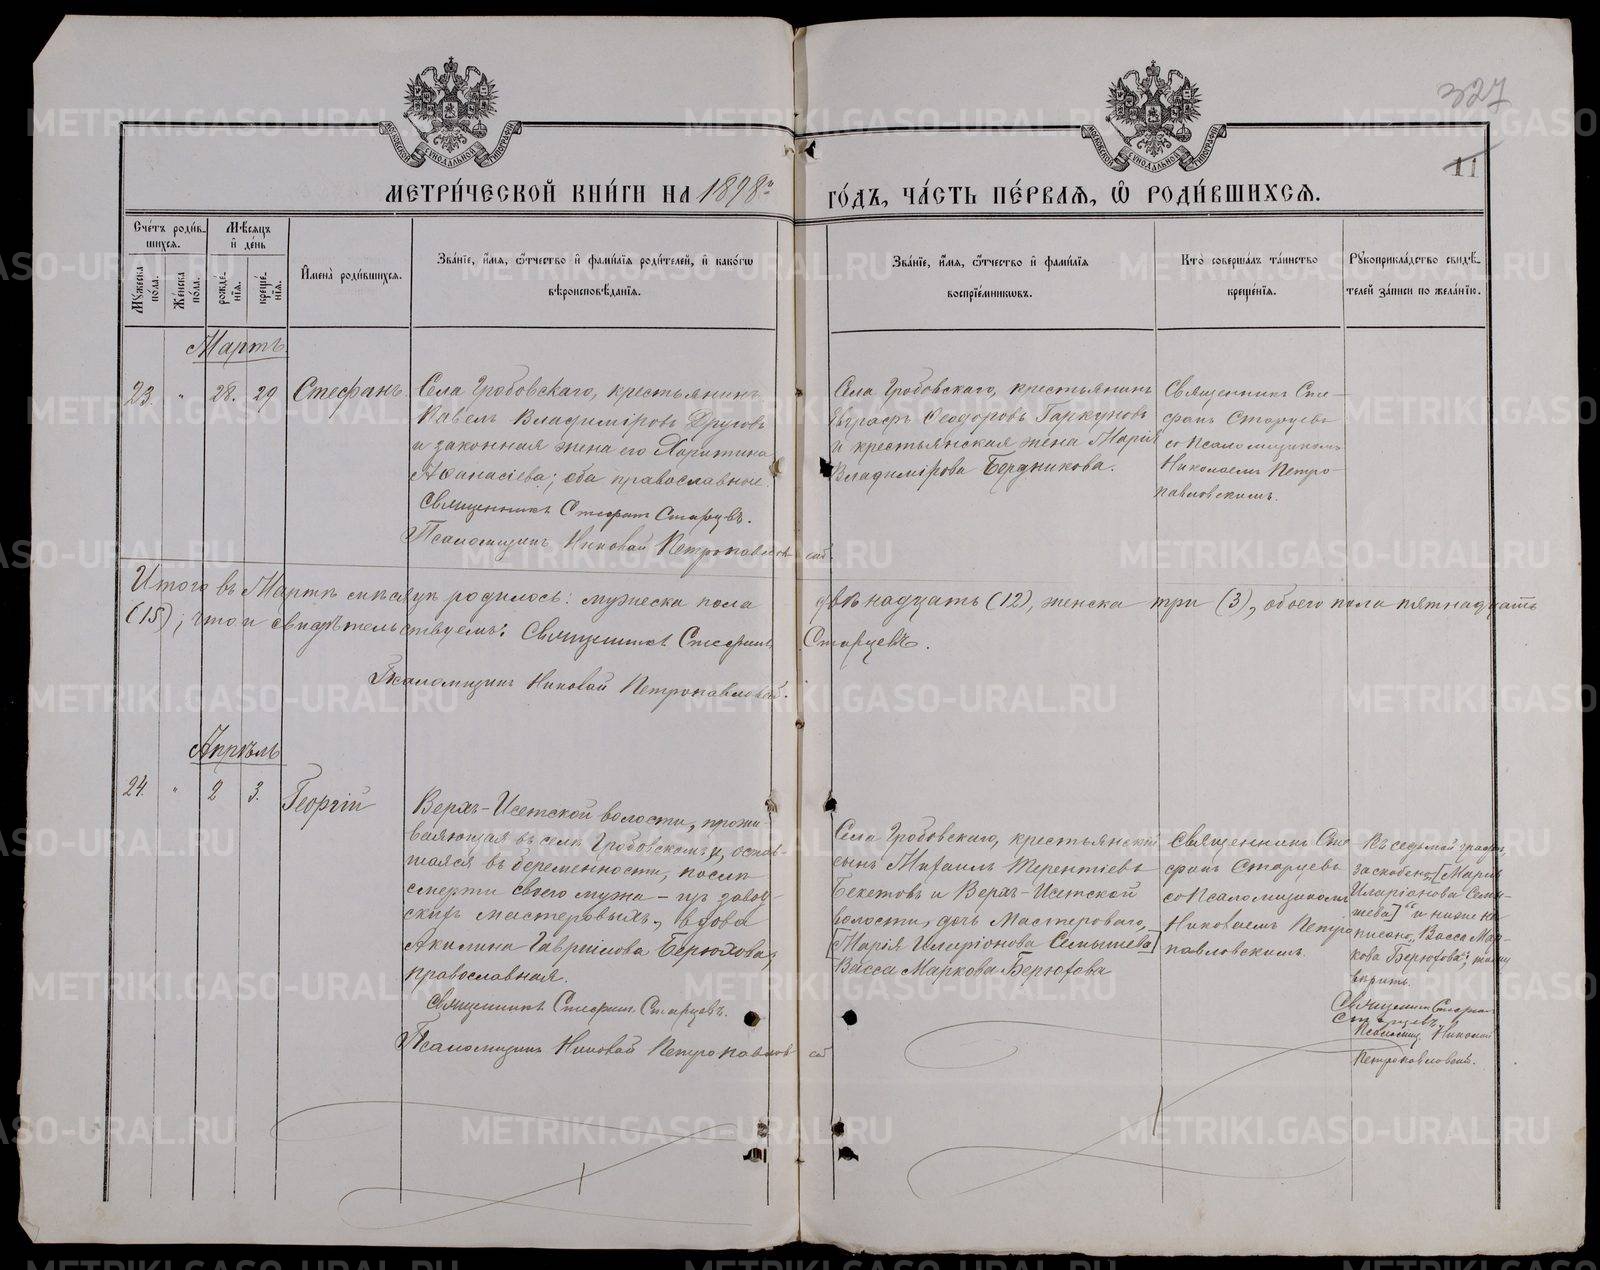 327
11
МОСКОВСКОЙ СѴНОДАЛЬНОЙ ТИПОГРАФІИ
МОСКОВСКОЙ СѴНОДАЛЬНОЙ ТИПОГРАФІИ
МЕТРИ́ЧЕСКОЙ КНИ́ГИ НА 1898й
ГО́ДЪ, ЧА́СТЬ ПЕ́РВАѦ, Ѡ҆ РОДИ́ВШИХСѦ.
Сче́тъ роди́в-
шихся.
Мѣ́сяцъ
и҆ де́нь
Мꙋ́жеска по́ла.
Же́нска по́ла.
рожде́-нїя.
креще́-нїя.
И҆мена̀ роди́вшихся.
Зва́нїе, и҆́мя, ѻ҆́тчество и҆ фами́лїя роди́телей, и҆ како́гѡ
вѣроисповѣ́данїя.
Зва́нїе, и҆́мя, ѻ҆́тчество и҆ фами́лїя
воспрїе́мникѡвъ.
Кто̀ соверша́лъ та́инство
креще́нїя.
Рꙋкоприкла́дство свидѣ́-
телей за́писи по жела́нїю.
Мартъ
23. " 28. 29 Стефанъ
Села Гробовскаго, крестьянинъ
Павелъ Владиміровъ Друговъ
и законная жена его Харитина
Аѳанасіева; оба православные.
Священникъ Стефанъ Старцевъ.
Псаломщикъ Николай Петропавловскій
Села Гробовскаго, крестьянинъ
Евграфъ Ѳеодоровъ Гаркуновъ
и крестьянская жена Марія
Владимірова Бердникова.
Священникъ Сте-
фанъ Старцевъ
со Псаломщикомъ
Николаемъ Петро-
павловскимъ.
Итого въ Мартѣ мѣсяцѣ родилось: мужеска пола двѣнадцать (12), женска три (3), обоего пола пятнадцать
(15); что и свидѣтельствуемъ: Священникъ Стефанъ Старцевъ.
Псаломщикъ Николай Петропавловскій.
Апрѣль
24. " 2 3. Георгій
Верхъ-Исетской волости, прожи-
вающая въ селѣ Гробовскомъ и, остав-
шаяся въ беременности, послѣ
смерти своего мужа - изъ завод-
скихъ мастеровыхъ, вдова
Акилина Гавриілова Берюхова,
православная.
Священникъ Стефанъ Старцевъ.
Псаломщикъ Николай Петропавловскій
Села Гробовскаго, крестьянскій
сынъ Михаилъ Терентіевъ
Бекетовъ и Верхъ-Исетской
волости, дочь Мастероваго,
[Марія Иларіонова Семышева]
Васса Маркова Берюхова
Священникъ Сте-
фанъ Старцевъ
со Псаломщикомъ
Николаемъ Петро-
павловскимъ.
Въ седьмой графѣ,
заскоблено „[Марія
Иларіонова Семы-
шева]“ и ниже на-
писано „Васса Мар-
кова Берюхова“; тому
вѣрить.
Священникъ Стефанъ
Старцевъ.
Псаломщ. Николай
Петропавловскій.
METRIKI.GASO-URAL.RU